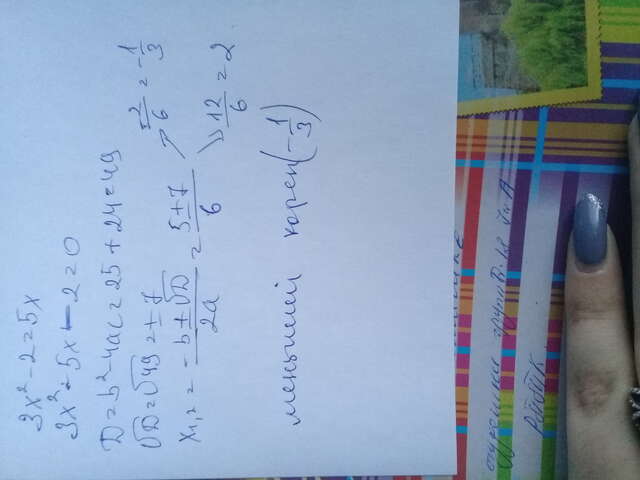 3x² - 2 = 5x
3x² - 5x - 2 = 0
D = b² - 4ac = 25 + 24 = 49
√D = √49 = ± 7
x₁,₂ = (-b ± √D)/2a = (5 ± 7)/6
-2/6 = -1/3
12/6 = 2
меньший корен (-1/3)